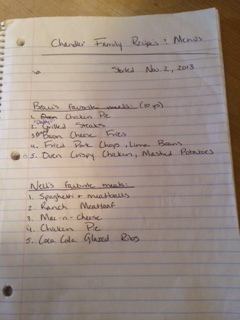 Chandler Family Recipes & Menus
Started Nov. 2, 2013
Beau's favorite meals: (10 yrs)
1. Chicken Pie
2. Grilled Steaks
3. Bacon Cheese Fries
4. Fried Pork Chops, Lima Beans
5. Oven Crispy Chicken, Mashed Potatoes
Nell's favorite meals:
1. Spaghetti & meatballs
2. Ranch Meatloaf
3. Mac-n-cheese
4. Chicken Pie
5. Coca Cola Glazed Ribs